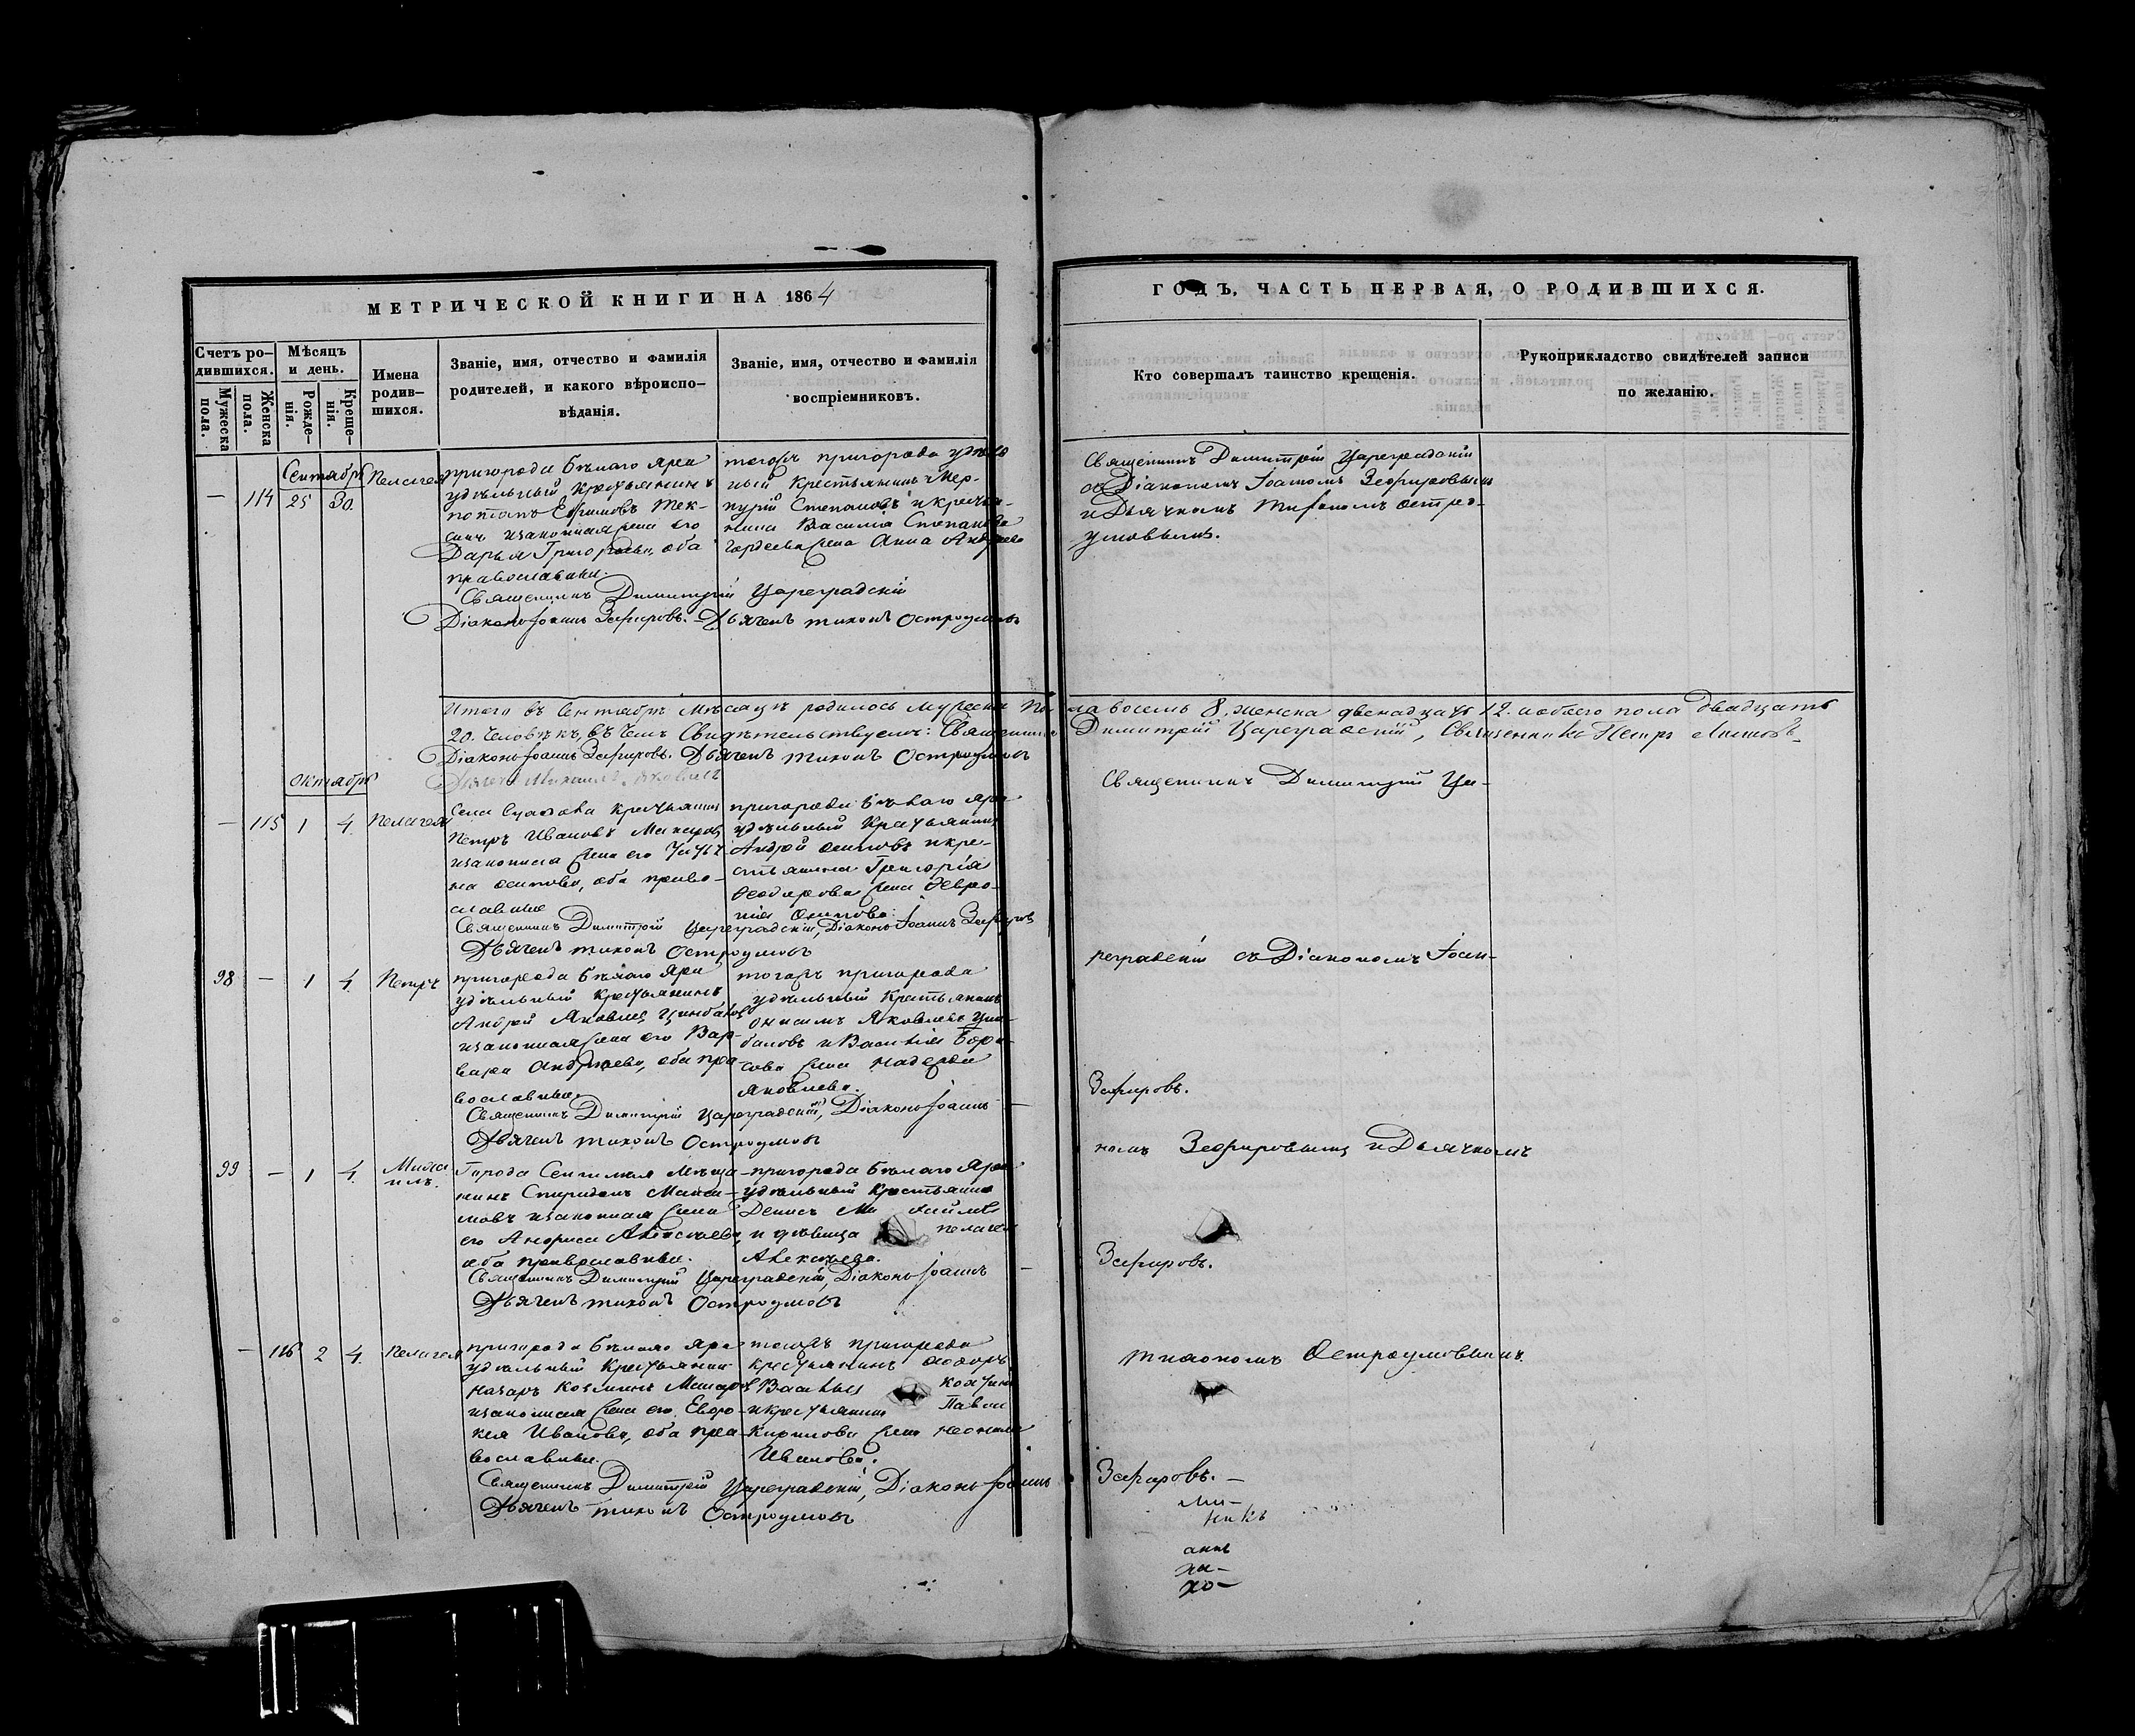 МЕТРИЧЕСКОЙ КНИГИ НА 1864
ГОДЪ, ЧАСТЬ ПЕРВАЯ, О РОДИВШИХСЯ.
Счетъ ро-
дившихся.
Мужеска
пола.
Женска
пола.
Мѣсяцъ
и день.
Рожде-
нія.
Креще-
нія.
Имена
родив-
шихся.
Званіе, имя, отчество и фамилія
родителей, и какого вѣроиспо-
вѣданія.
Званіе, имя, отчество и фамилія
воспріемниковъ.
Кто совершалъ таинство крещенія.
Рукоприкладство свидѣтелей записи
по желанію.
Сентябрь
— 114 25 30. Пелагея
пригорода Бѣлаго Яра
удѣльный крестьянинъ
Ефимовъ
изаконная жена его
Дарья Григорьева, оба
православные.
тогожъ пригорода удѣль
ный крестьянинъ Мер-
курій Степановъ и крестья-
нина Василія Степанова
Гордеева жена Анна Андреева
Священникъ Димитрій Цареградскій
Діаконъ Іоаннъ Зефировъ. Дьячекъ Тихонъ Остроумовъ
Священникъ Димитрій Цареградскій
съ Діакономъ Іоанномъ Зефировымъ
и Дьячкомъ Тихономъ Остро-
умовымъ.
Итого въ Сентябрѣ мѣсяцѣ родилось мужеска по
ла восемь 8, женска двенадцать 12. и обоего пола двадцать
20. человѣкъ, въ чемъ свидѣтельствуемъ: Священникъ
Димитрій Цареградскій, Священникъ Петръ
Діаконъ Іоаннъ Зефировъ. Дьячекъ Тихонъ Остроумовъ
Октябрь
— 115 1 4. Пелагея
Села крестьянинъ
Петръ Ивановъ Макаровъ
изаконная жена его Усть
на Осипова, оба право-
славные
пригорода Бѣлаго Яра
удѣльный крестьянинъ
Андрей Осиповъ и кре-
стьянина Григорія
Феодорова жена Февро-
нія Осипова.
Священникъ Димитрій Цареградскій, Діаконъ Іоаннъ Зефировъ
Дьячекъ Тихонъ Остроумовъ
Священникъ Димитрій Ца-
98 — 1 4. Петръ
пригорода Бѣлаго Яра
удѣльный крестьянинъ
Андрей Яковлевъ Цинбаловъ
изаконная жена его Вар-
вара Андреева, оба пра-
вославные.
тогожъ пригорода
удѣльный крестьянинъ
Онисимъ Яковлевъ Цин-
баловъ и Василія Бори-
сова жена Надежда
Яковлева.
Священникъ Димитрій Цареградскій, Діаконъ Іоаннъ —
Зефировъ.
Дьячекъ Тихонъ Остроумовъ
реградскій съ Діакономъ Іоан-
99 — 1 4. Миха
илъ.
Города Сенгилея мѣща-
нинъ Спиридонъ Макси-
мовъ изаконная жена
его Алексѣева,
оба православные.
пригорода Бѣлаго Яра
удѣльный крестьянинъ
Денисъ Ми хайловъ
и дѣвица Пелагея
Алексѣева.
Священникъ Димитрій Цареградскій, Діаконъ Іоаннъ —
Зефировъ.
Дьячекъ Тихонъ Остроумовъ
номъ Зефировымъ и Дьячкомъ
— 116 2 4. Пелагея
пригорода Бѣлаго Яра
удѣльный крестьянинъ
Назаръ Козминъ Макаровъ
изаконная жена его Евдо-
кея Иванова, оба пра-
вославные.
тогожъ пригорода
крестьянинъ Феодоръ
Васильевъ
и крестьянина Павла
Кирилова жена Неонила
Иванова.
Священникъ Димитрій Цареградскій, Діаконъ Іоаннъ
Зефировъ. —
Дьячекъ Тихонъ Остроумовъ
Тихономъ Остроумовымъ.
никъ
анн
ха-
хо-